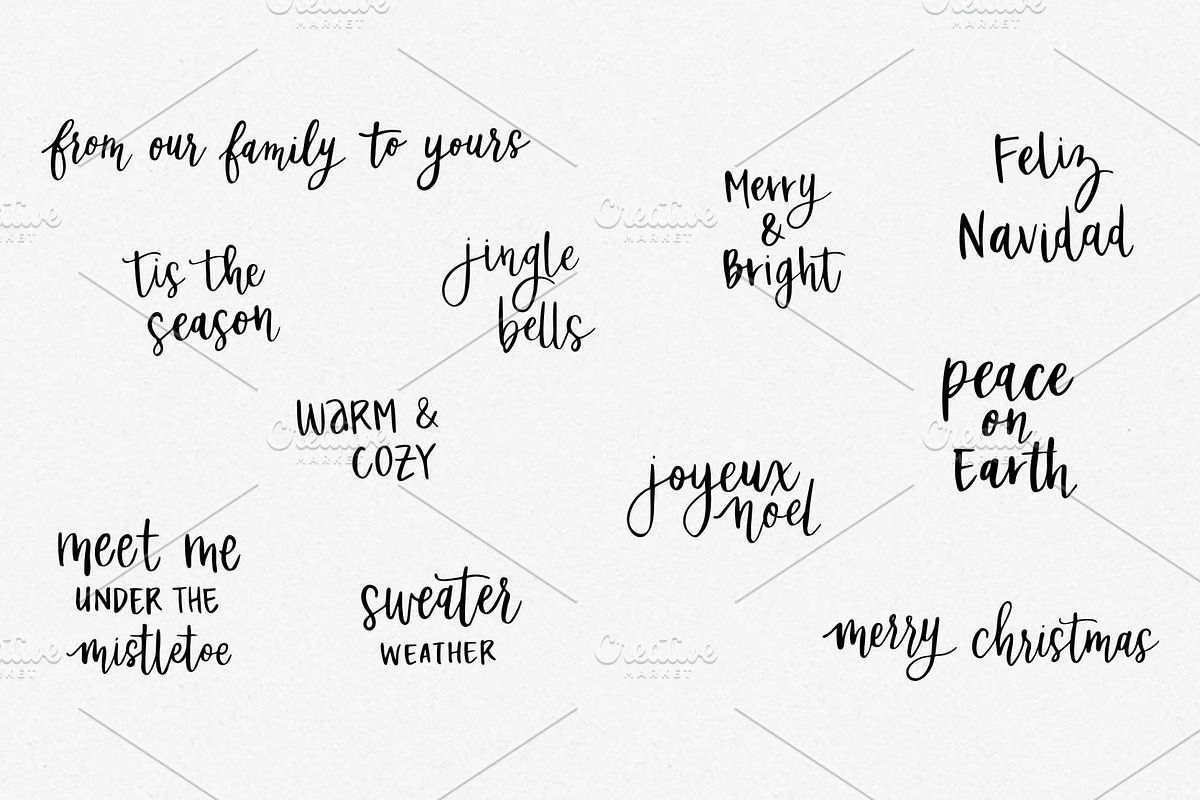 Creative
MARKET
Creative
MARKET
from our family to yours
Merry
&
Bright
Feliz
Navidad
Creative
MARKET
Creative
MARKET
'tis the
season
jingle
bells
peace
on
Earth
WARM &
COZY
Creative
MARKET
Creative
MARKET
joyeux
noel
meet me
UNDER THE
mistletoe
sweater
WEATHER
merry christmas
Creative
MARKET
Creative
MARKET